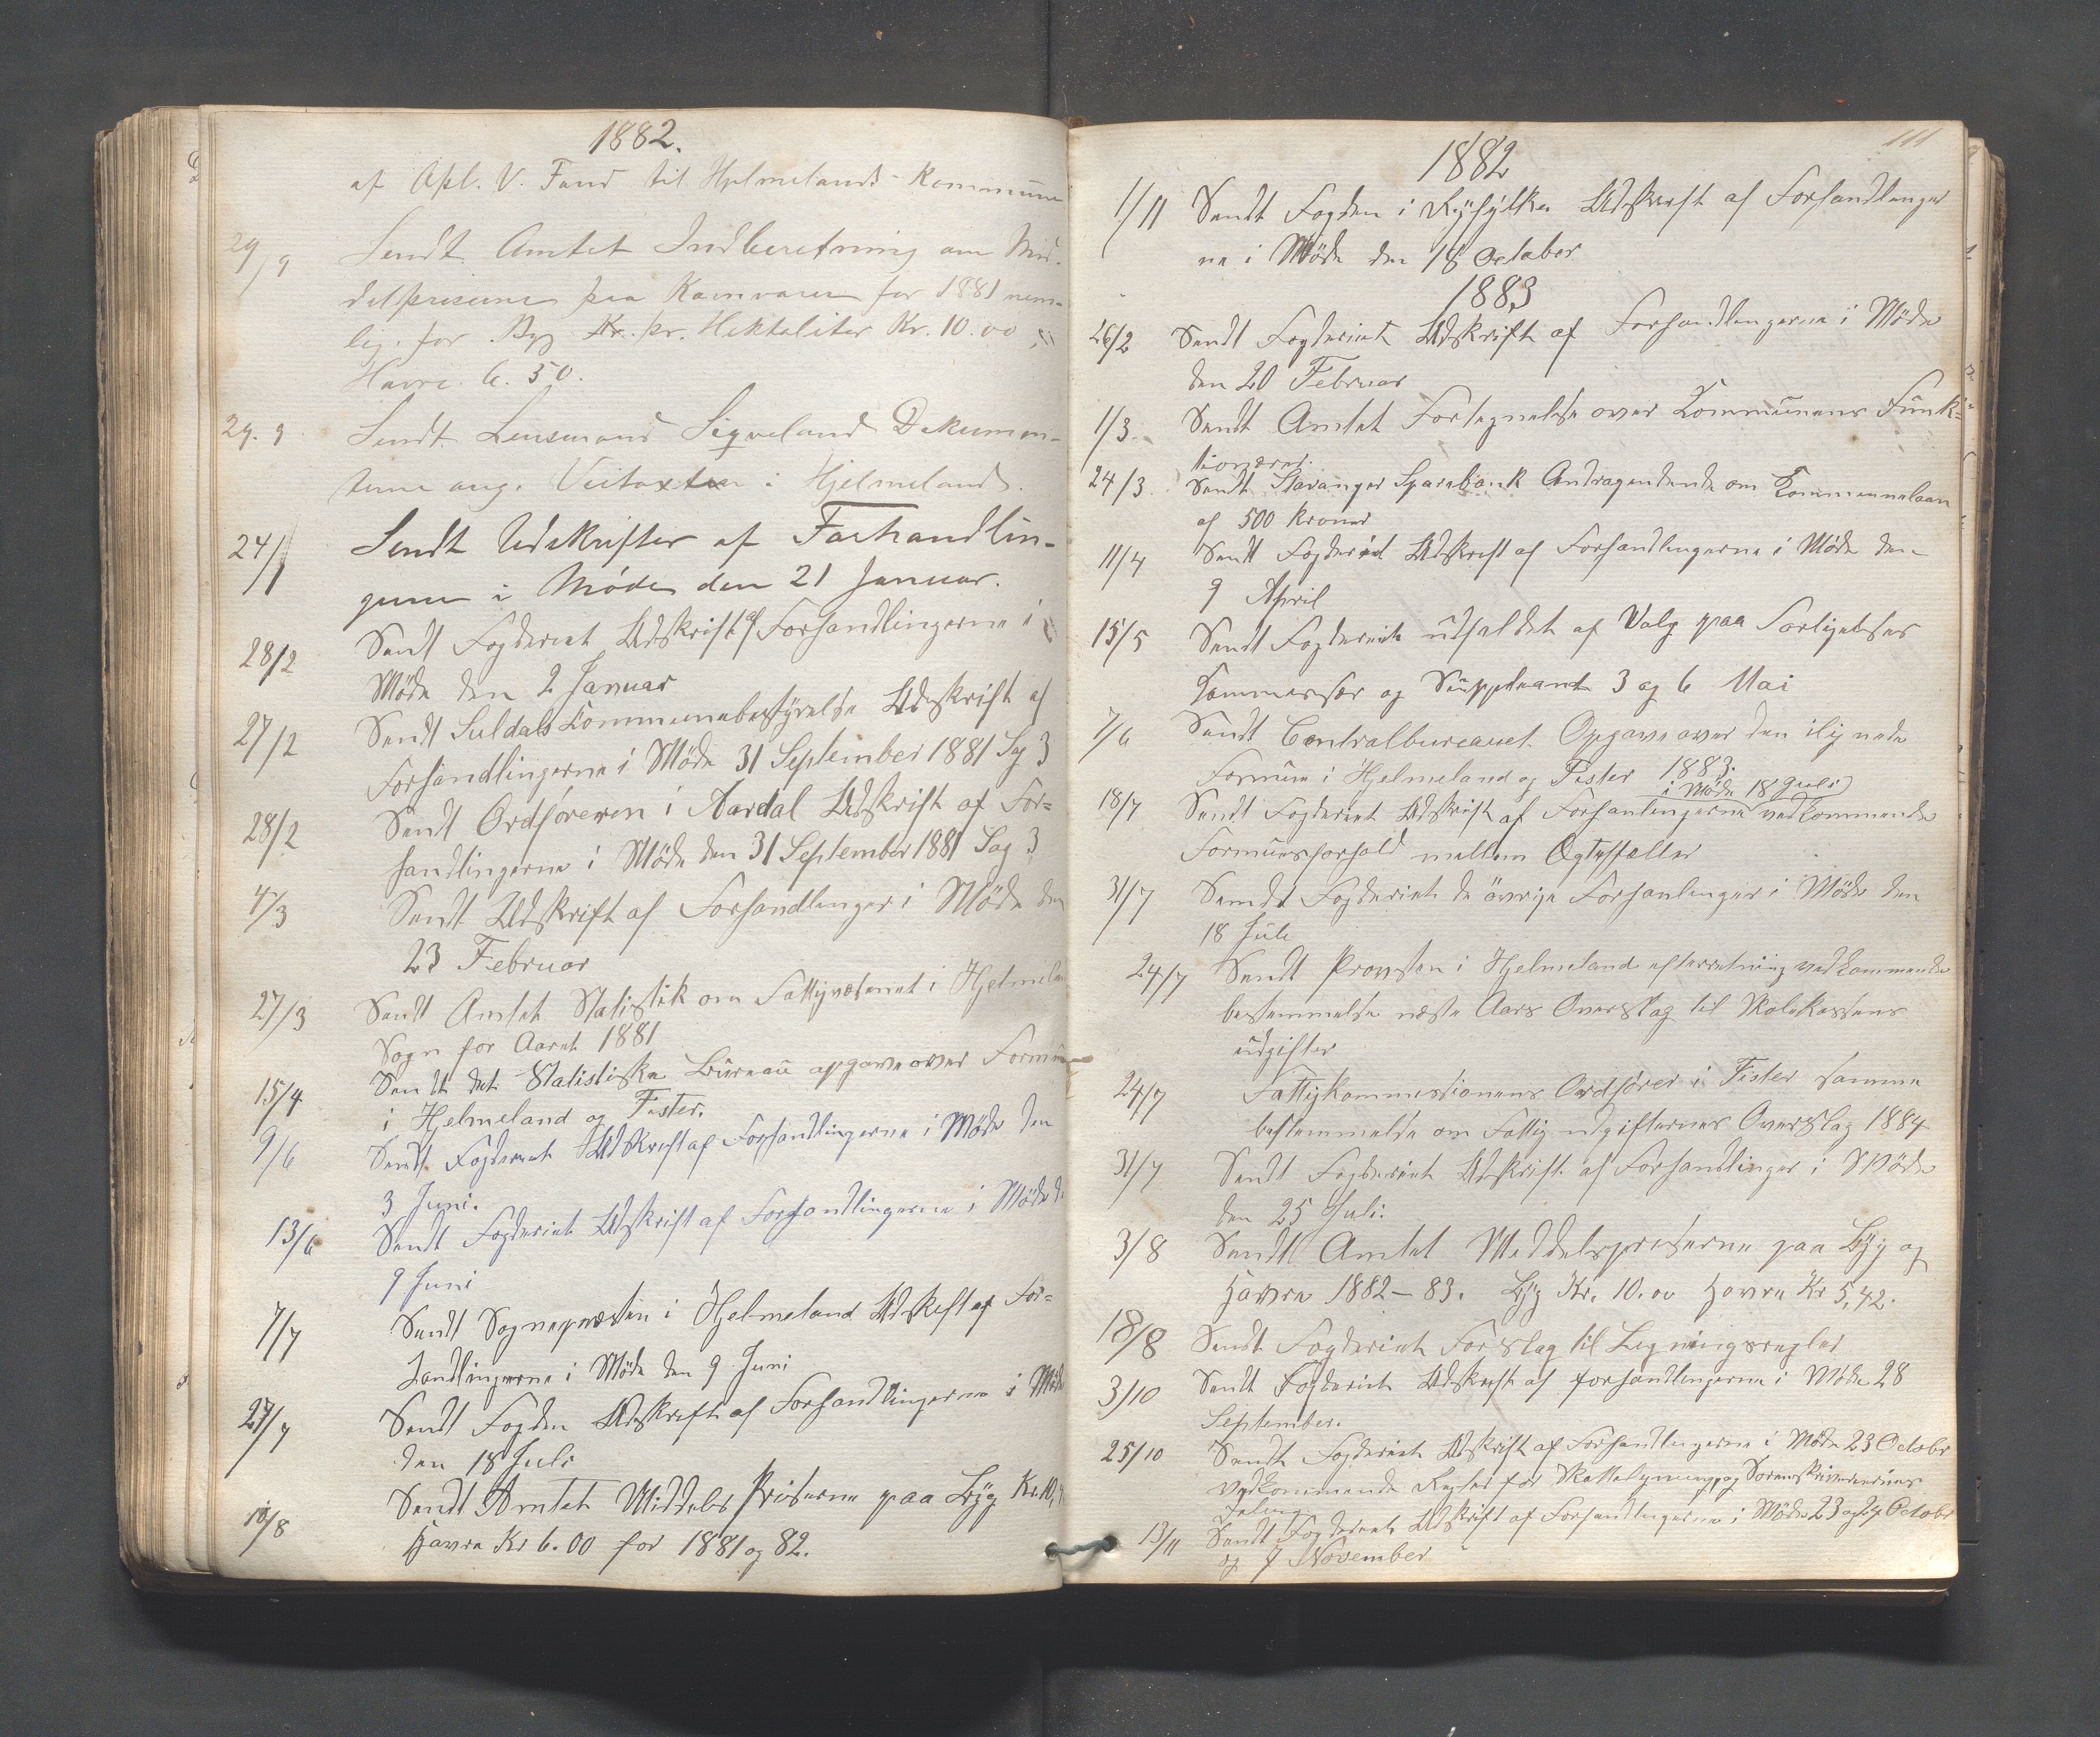 1882.
af Opl. V. Fond til Hjelmelands Kommune
29/9 Sendt Amtet Indberetning om Mid-
delpriserne paa Kornvarer for 1881 nem-
lig. for Byg Kr. pr. Hektoliter Kr. 10.00
Havre. 6. 50.
29. 9 Sendt Lensmand Sigveland Dokumen-
terne ang. Veitaxten i Hjelmeland.
24/1 Sendt Udskrifter af Forhandlin-
gerne i Møde den 21 Januar.
28/2 Sendt Fogderiet Udskrift af Forhandlingerne i
Møde den 2 Januar
27/2 Sendt Suldals Kommunebestyrelse Udskrift af
Forhandlingerne i Møde 31 September 1881 Sag 3
28/2 Sendt Ordføreren i Aardal Udskrift af For-
handlingerne i Møde den 31 September 1881 Sag 3
4/3 Sendt Udskrift af Forhandlinger i Møde den
23 Februar
27/3 Sendt Amtet Statistik om Fattigvæsenet i Hjelmeland
Sogn for Aaret 1881
15/4 Sendt det Statistiske Bureau opgave over Formue
i Hjelmeland og Fister.
9/6 Sendt Fogderiet Udskrift af Forhandlingerne i Møde den
3 Juni.
13/6 Sendt Fogderiet Udskrift af Forhandlingerne i Møde de
9 Juni
7/7 Sendt Sognepresten i Hjelmeland Udskrift af For-
handlingerne i Møde den 9 Juni
27/7 Sendt Fogden Udskrift af Forhandlingerne i Møde
den 18 Juli
10/8 Sendt Amtet Middels Priserne paa Byg Kr. 10,
Havre Kr 6.00 for 1881 og 82.
111
1882
1/11 Sendt Fogden i Ryfylke Udskrift af Forhandlinger
ne i Møde den 18 October
1883
26/2 Sendt Fogderiet Udskrift af Forhandlingerne i Møde
den 20 Februar
1/3 Sendt Amtet Fortegnelse over Kommunens Funk-
tionærer.
24/3 Sendt Stavanger Sparebank Andragendende om Kommunelaan
af 500 Kroner
11/4 Sendt Fogderiet Udskrift af Forhandlingerne i Møde den
9 April
15/5 Sendt Fogderiet udfaldet af Valg paa Forligelses
Kommissær og Suppleant 3 og 6 Mai
7/6 Sendt Centralbureauet Opgave over den ilignede
Formue i Hjelmeland og Fister 1883.
i Møde 18 Juli
18/7 Sendt Fogderiet Udskrift af Forhanlingerne vedkommende
Formuesforhold mellem Ægtefæller
31/7 Sendt Fogderiet de øvrige Forhanlinger i Møde den
18 Juli
24/7 Sendt Provsten i Hjelmeland efterretning vedkommende
bestemmelse næste Aars Overslag til Skolekassens
udgifter
24/7 Fattigkommissionens Ordfører i Fister samme
bestemmelse om Fattigudgifternes Overslag 1884
31/7 Sendt Fogderiet Udskrift af Forhandlinger i Møde
den 25 Juli.
3/8 Sendt Amtet Meddelspriserne paa Byg og
Havre 1882 – 83. Byg Kr. 10.00 Havre Kr 5,42.
18/8 Sendt Fogderiet Forslag til Ligningsregler
3/10 Sendt Fogderiet Udskrift af forhandlingerne i Møde 28
September.
25/10 Sendt Fogderiet Udskrift af Forhandlingerne i Møde 23 October
vedkommende Regler for Skatteligning og Sorenskriveriernes
Deling
13/11 Sendt Fogderiet Udskrift af Forhandlingerne i Møde 23 og 24 October
og 7 November